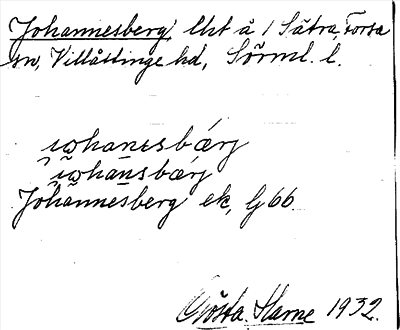 Johannesberg, lht å 1 Sätra, Forssa
sn, Villåttinge hd, Sörml. l.
ɩohanesbærj
ɩohansbærj
Johannesberg ek, G 66.
Gösta Starne 1932.